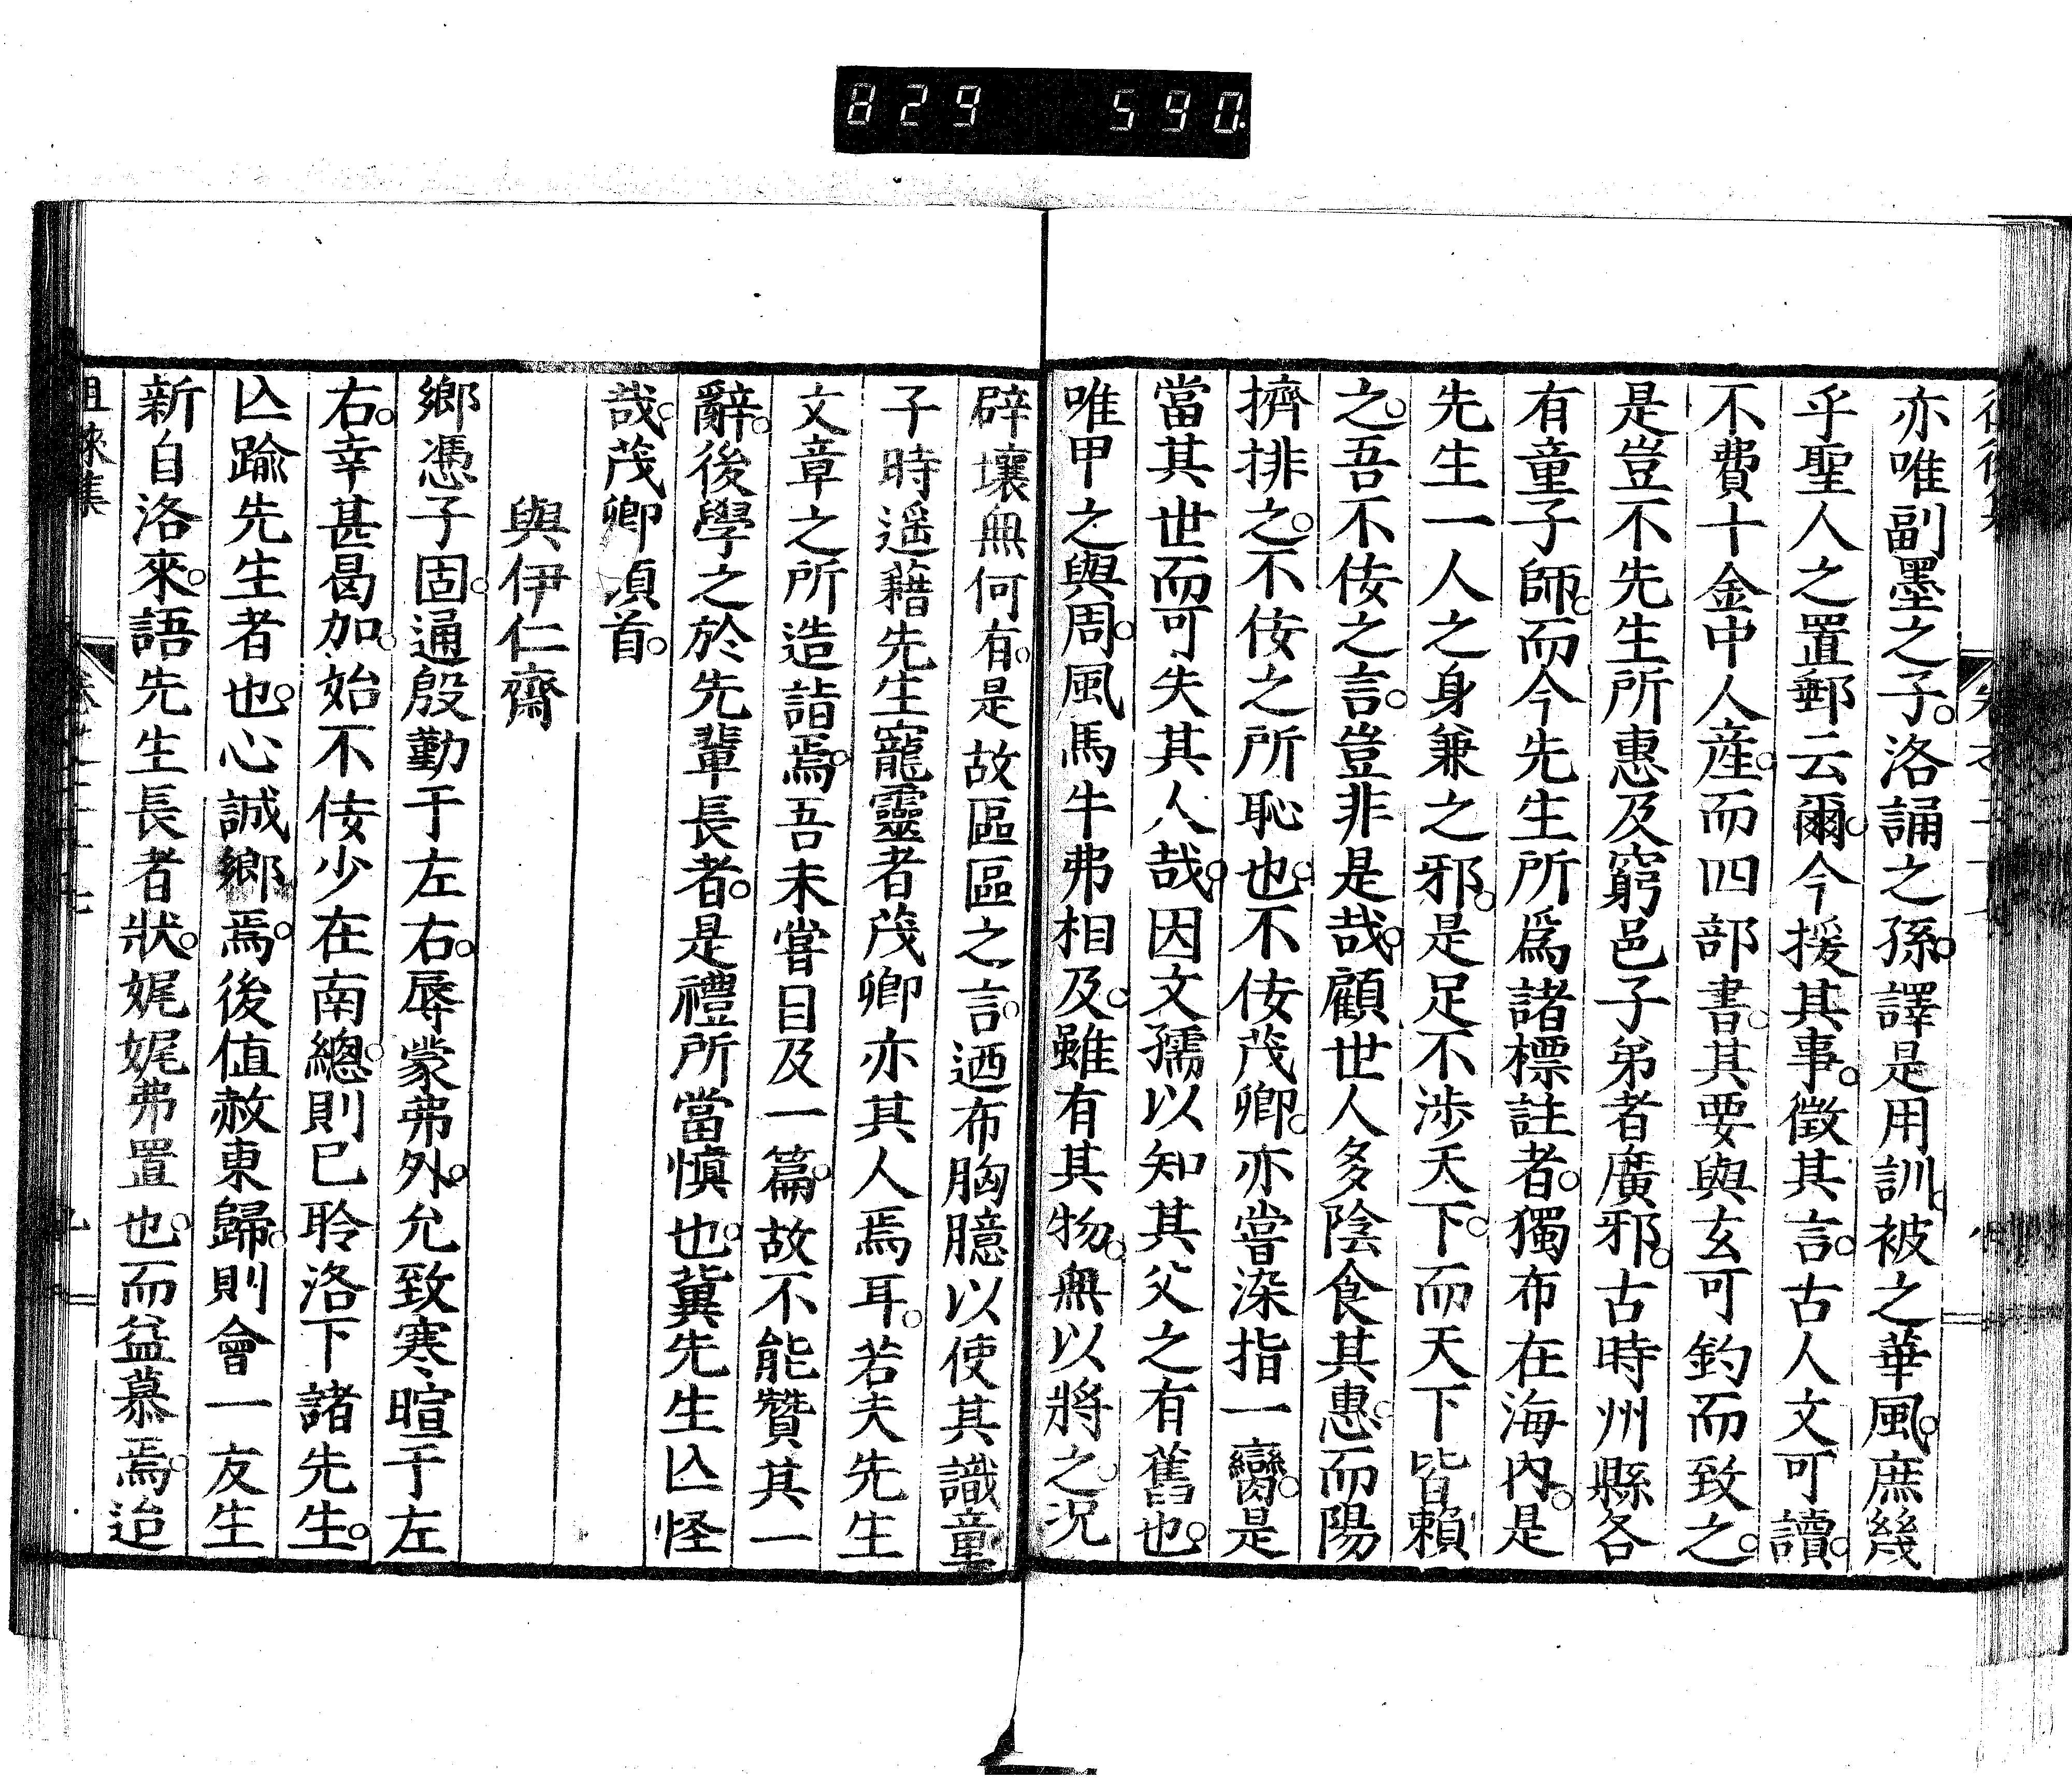 829 590
亦唯副墨之子。洛誦之孫。譯是用訓。被之華風。庶幾
乎聖人之置郵云爾。今援其事。徵其言。古人文可讀。
不費十金中人産。而四部書。其要與玄可釣而致之。
是豈不先生所惠及窮邑子弟者廣邪。古時州縣各
有童子師。而今先生所爲諸標註者。獨布在海內。是
先生一人之身兼之邪。是足不涉天下。而天下皆賴
之。吾不佞之言。豈非是哉。顧世人多陰食其惠。而陽
擠排之。不佞之所恥也。不佞茂卿。亦嘗染指一臠。是
當其世而可失其人哉。因文孺以知其父之有舊也。
唯甲之與周。風馬牛弗相及。雖有其物。無以將之。況
辟壤無何有。是故區區之言。迺布胸臆以使其識童
子時遥藉先生寵靈者茂卿亦其人焉耳。若夫先生
文章之所造詣焉。吾未嘗目及一篇。故不能贊其一
辭。後學之於先輩長者。是禮所當愼也。冀先生亾怪
哉。茂卿頓首。
與伊仁齋
鄉憑子固。通殷勤于左右。辱蒙弗外。允致寒暄于左
右。幸甚曷加。始不佞少在南總。則已聆洛下諸先生。
亾踰先生者也。心誠鄉焉。後值赦東歸。則會一友生
新自洛來。語先生長者狀。娓娓弗置也。而益慕焉。迨
徠集